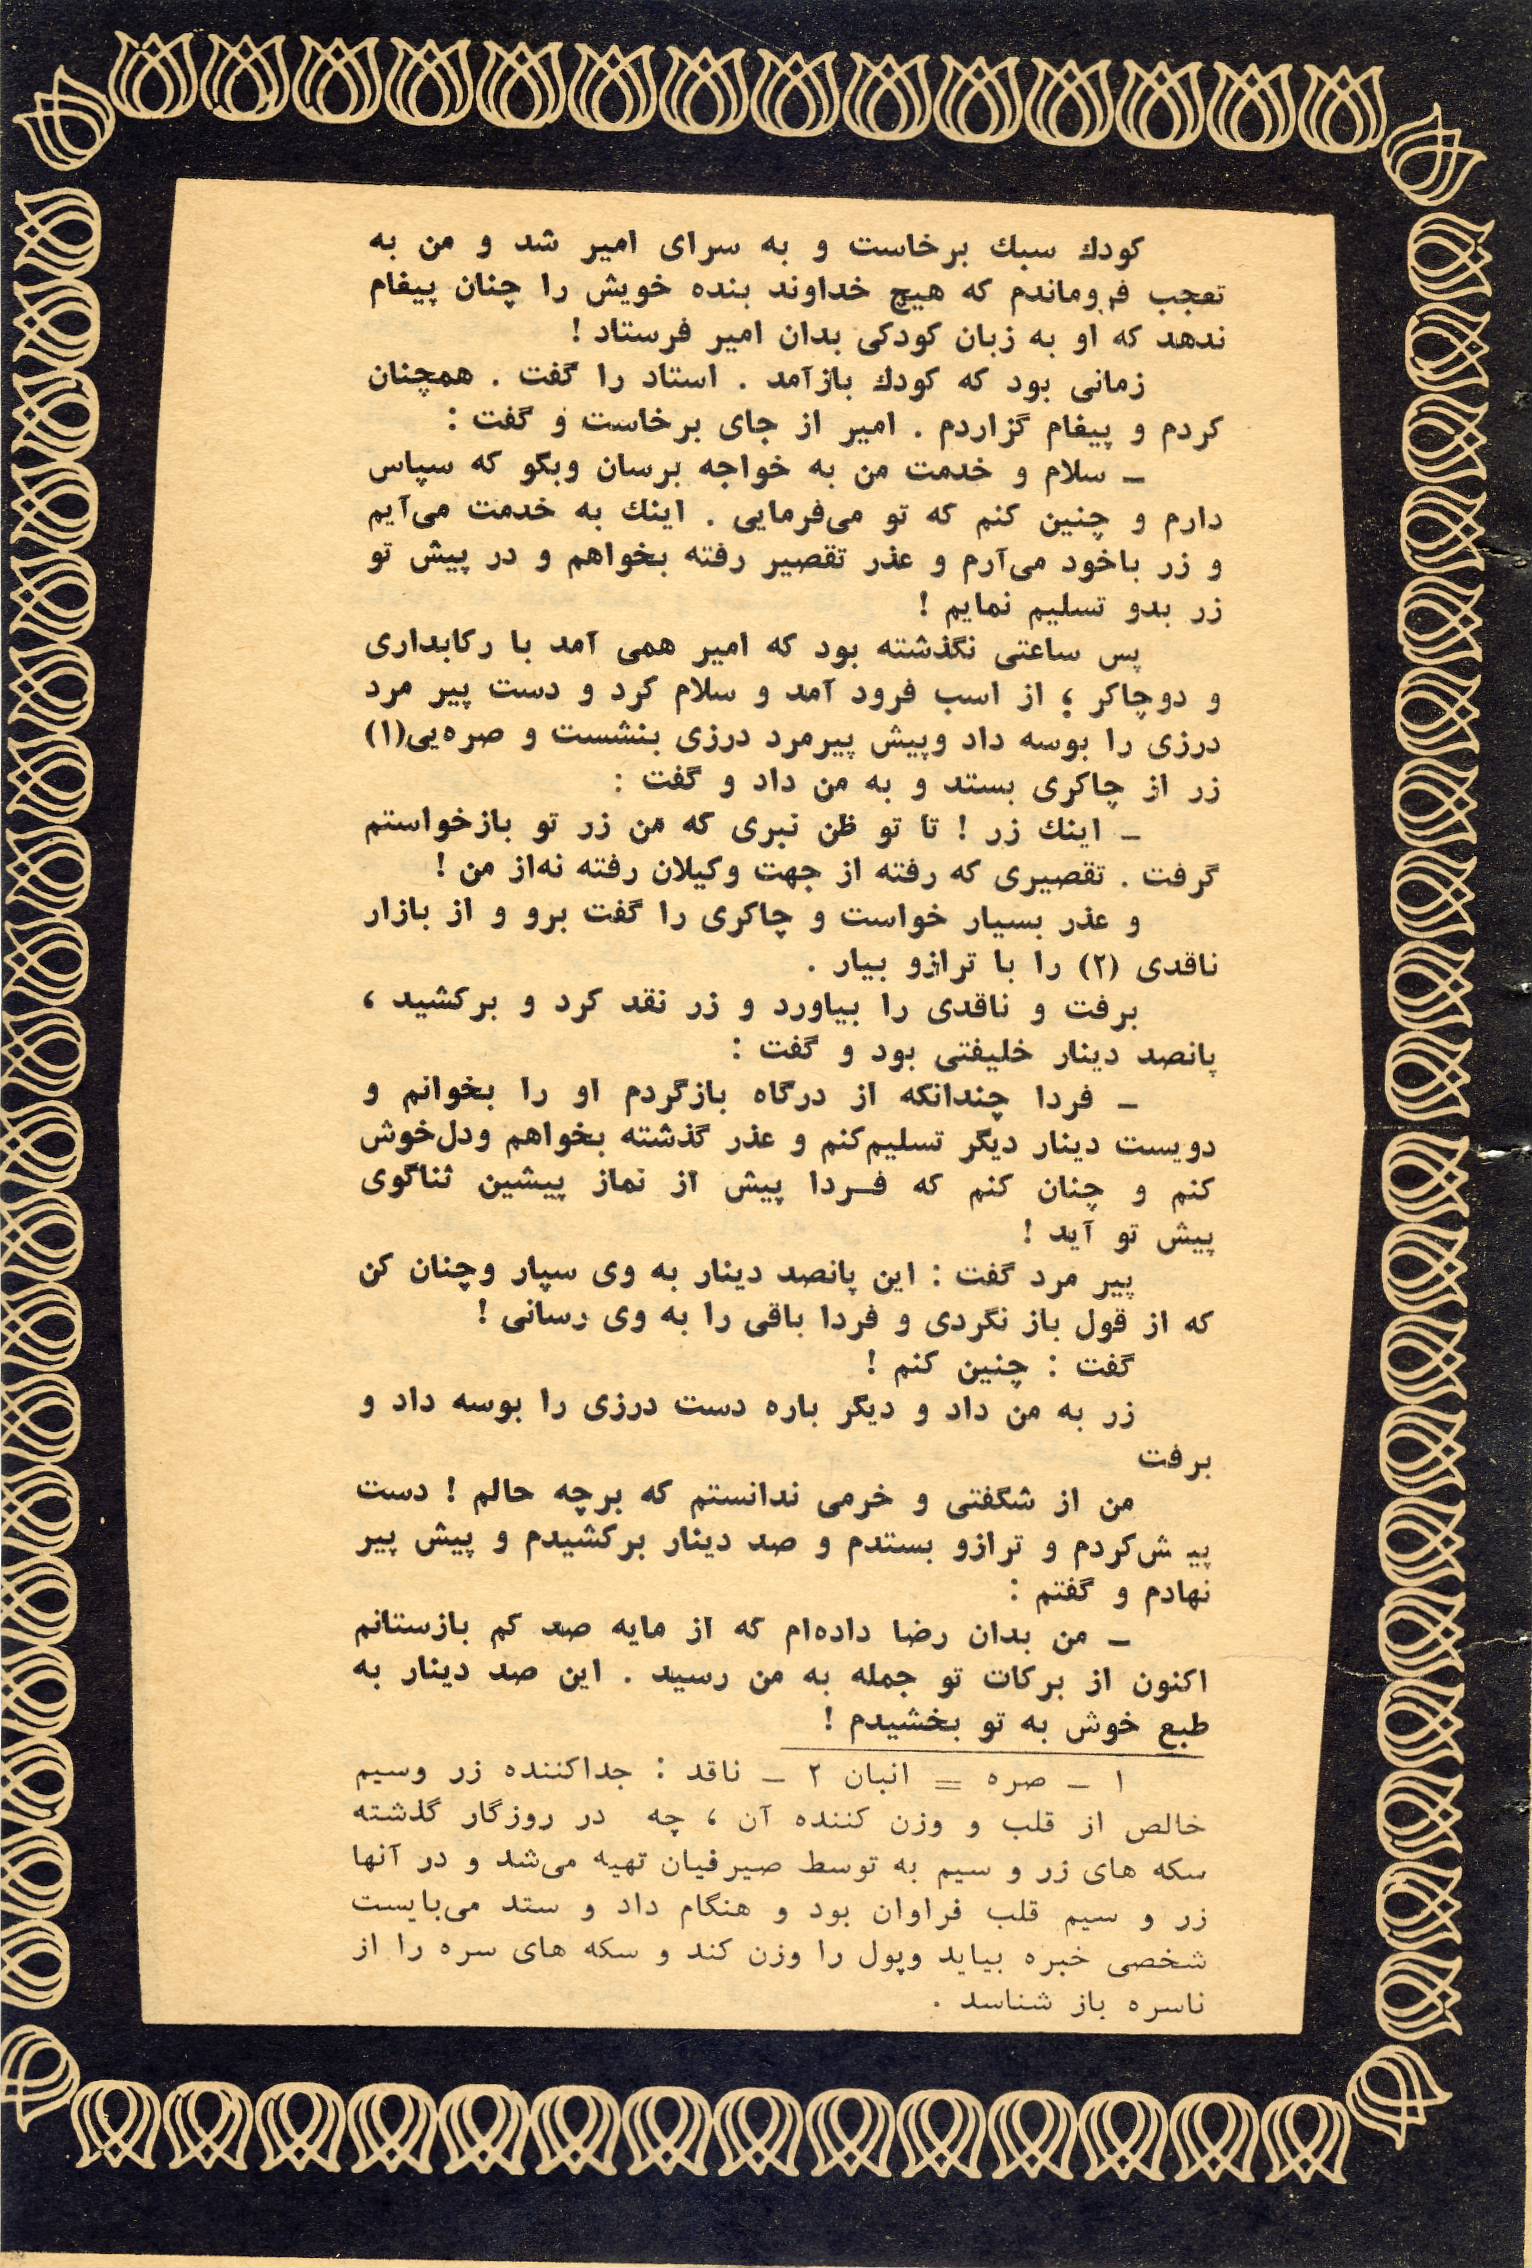 کودك سبك برخاست و به سرای امیر شد و من به
تعجب فروماندم که هیچ خداوند بنده خویش را چنان پیغام
ندهد که او به زبان کودکی بدان امیر فرستاد !
زمانی بود که کودك بازآمد . استاد را گفت . همچنان
کردم و پیغام گزاردم . امیر از جای برخاست و گفت :
ـ سلام و خدمت من به خواجه برسان وبگو که سپاس
دارم و چنین کنم که تو می‌فرمایی . اینك به خدمت می‌آیم
و زر باخود می‌آرم و عذر تقصیر رفته بخواهم و در پیش تو
زر بدو تسلیم نمایم !
پس ساعتی نگذشته بود که امیر همی آمد با رکابداری
و دوچاکر ؛ از اسب فرود آمد و سلام کرد و دست پیر مرد
درزی را بوسه داد وپیش پیرمرد درزی بنشست و صره‌یی(۱)
زر از چاکری بستد و به من داد و گفت :
ـ اینك زر ! تا تو ظن نبری که من زر تو بازخواستم
گرفت . تقصیری که رفته از جهت وکیلان رفته نه‌از من !
و عذر بسیار خواست و چاکری را گفت برو و از بازار
ناقدی (۲) را با ترازو بیار .
برفت و ناقدی را بیاورد و زر نقد کرد و برکشید ،
پانصد دینار خلیفتی بود و گفت :
ـ فردا چندانکه از درگاه بازگردم او را بخوانم و
دویست دینار دیگر تسلیم‌کنم و عذر گذشته بخواهم ودل‌خوش
کنم و چنان کنم که فـردا پیش از نماز پیشین ثناگوی
پیش تو آید !
پیر مرد گفت : این پانصد دینار به وی سپار وچنان کن
که از قول باز نگردی و فردا باقی را به وی رسانی !
گفت : چنین کنم !
زر به من داد و دیگر باره دست درزی را بوسه داد و
برفت
من از شگفتی و خرمی ندانستم که برچه حالم ! دست
پیش‌کردم و ترازو بستدم و صد دینار برکشیدم و پیش پیر
نهادم و گفتم :
ـ من بدان رضا داده‌ام که از مایه صد کم بازستانم
اکنون از برکات تو جمله به من رسید . این صد دینار به
طبع خوش به تو بخشیدم !
۱ ـ صره = انبان ۲ ـ ناقد : جداکننده زر وسیم
خالص از قلب و وزن کننده آن ، چه در روزگار گذشته
سکه های زر و سیم به توسط صیرفیان تهیه می‌شد و در آنها
زر و سیم قلب فراوان بود و هنگام داد و ستد می‌بایست
شخصی خبره بیاید وپول را وزن کند و سکه های سره را از
ناسره باز شناسد .